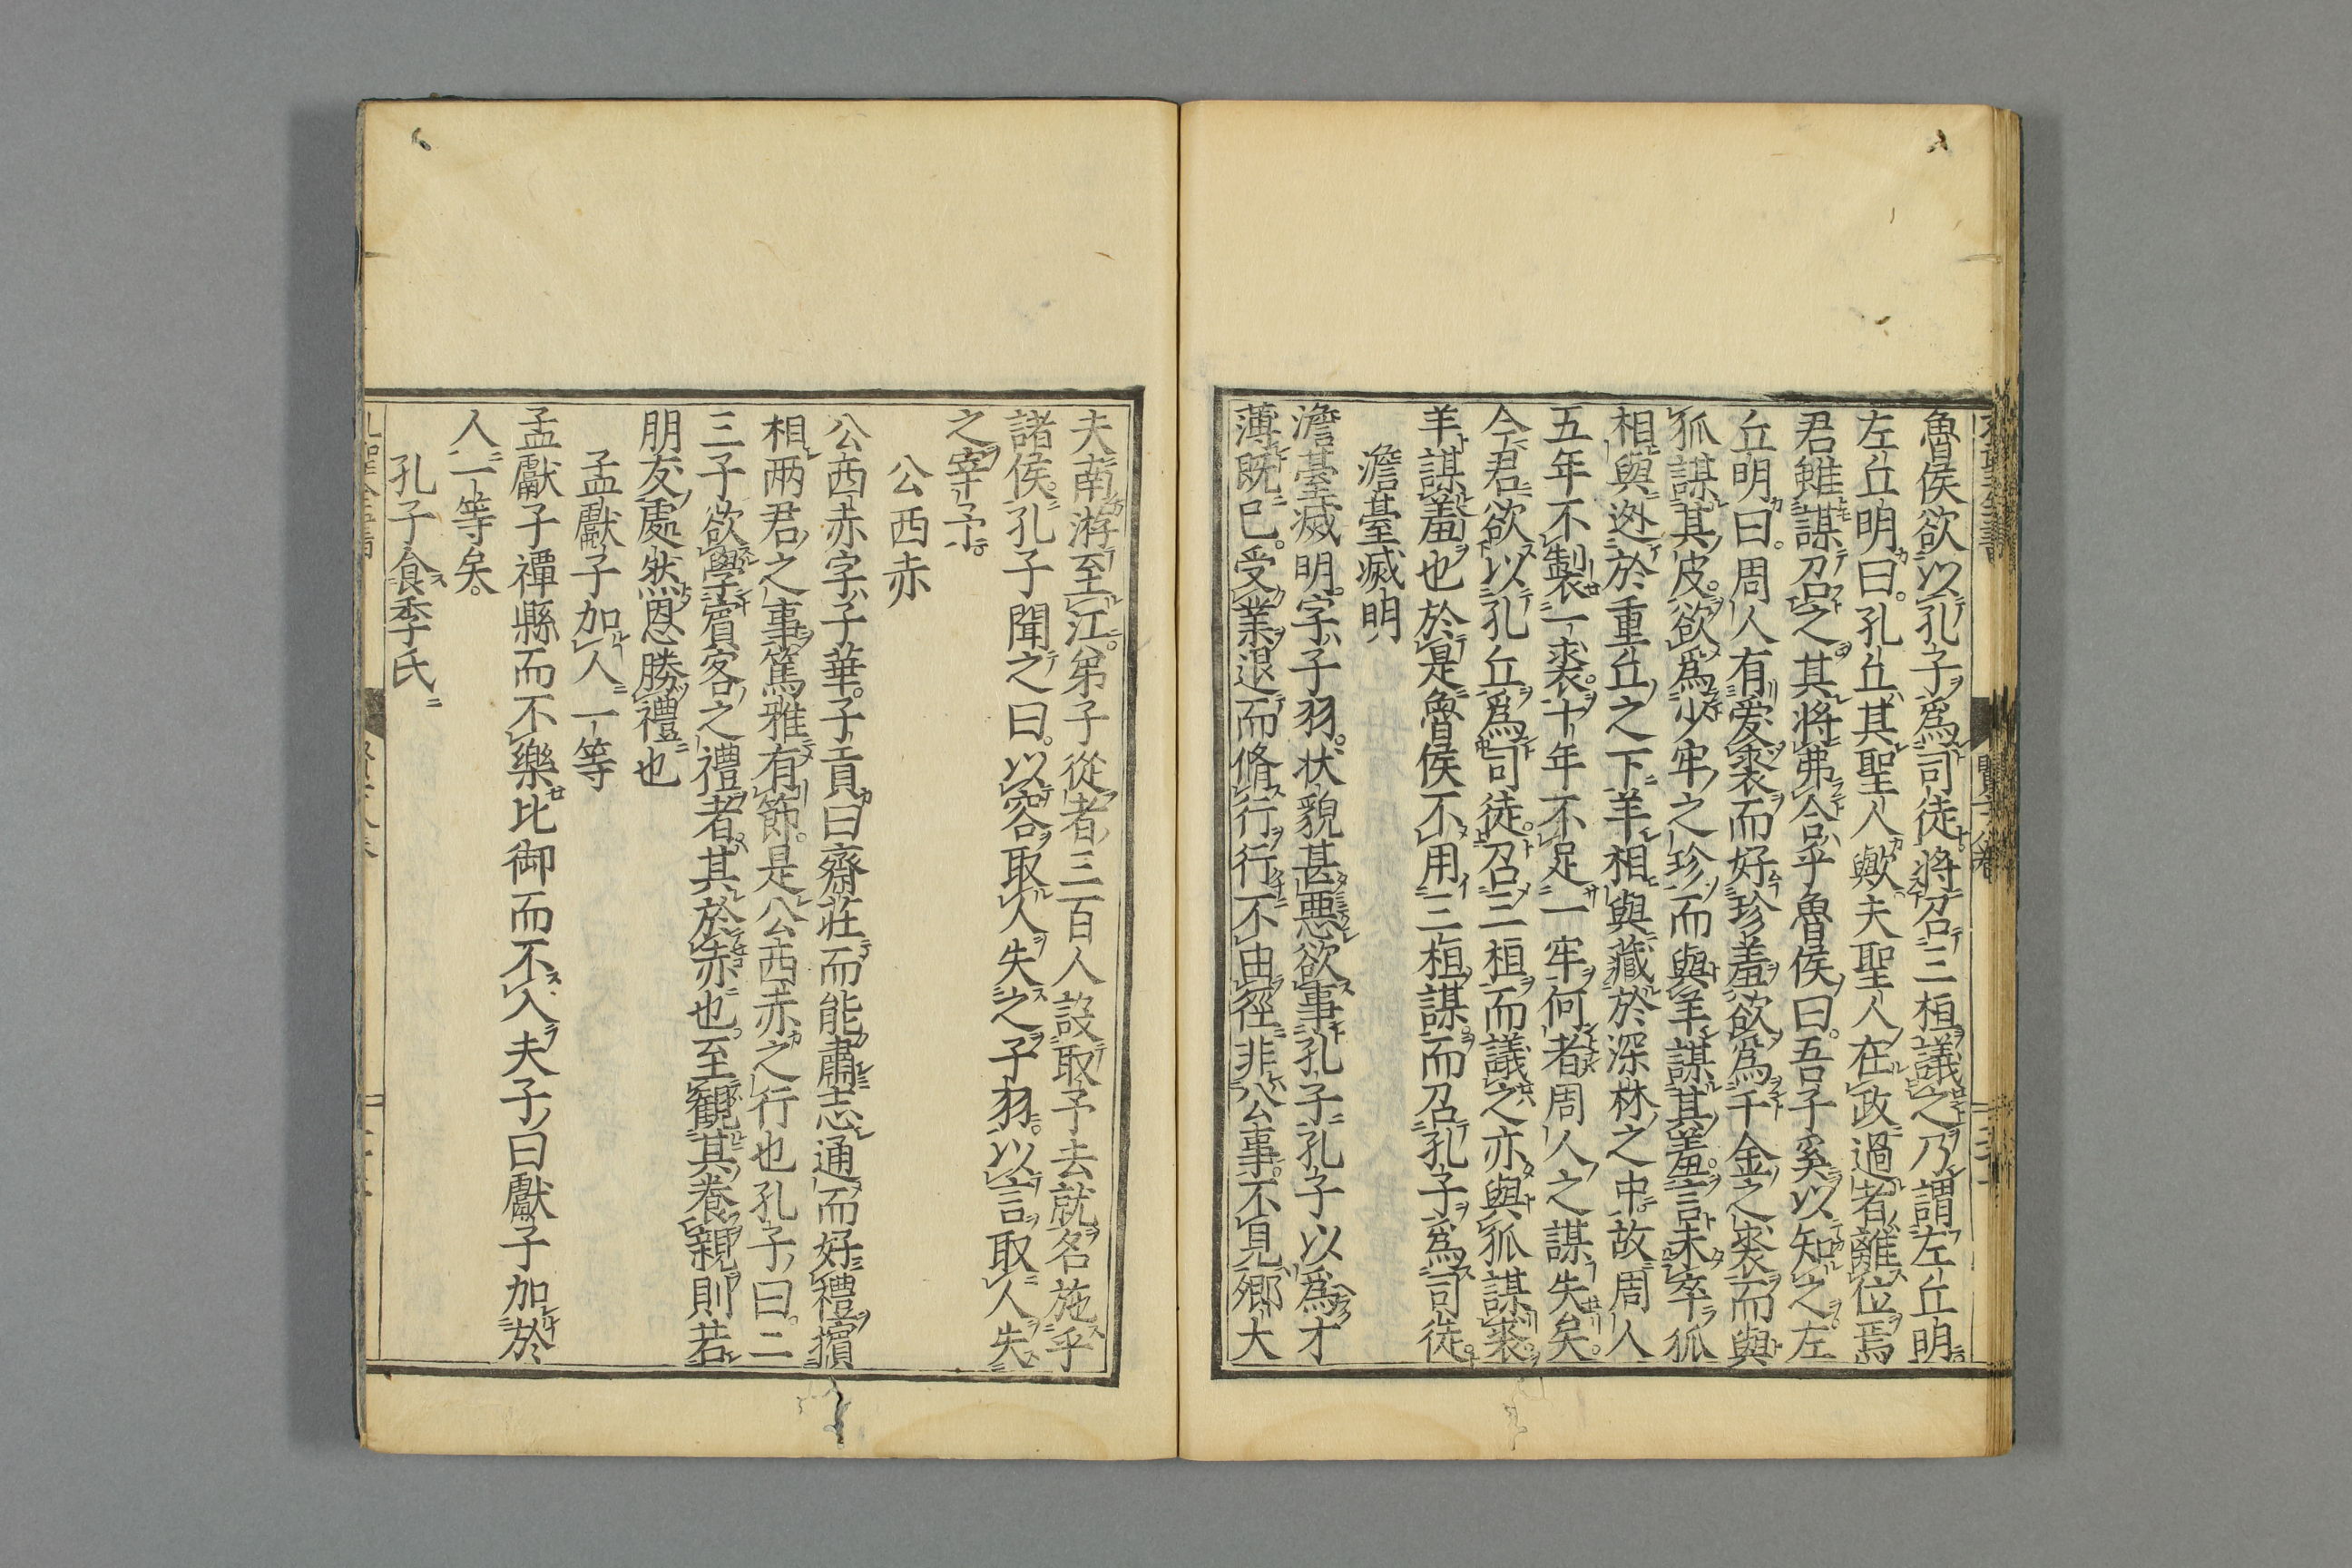 魯侯欲以孔子爲司徒將召三桓議之乃謂左丘明
左丘明曰孔丘其聖人歟夫聖人在政過者離位焉
君雖謀召之其將弗合乎魯侯曰吾子奚以知之左
丘明曰周人有愛裘而好珍羞欲爲千金之裘而與
狐謀其皮欲爲少牢之珍而與羊謀其羞言未卒狐
相與逃於重丘之下羊相與藏於深林之中故周人
五年不製一裘十年不足一牢何者周人之謀失矣
今君欲以孔丘爲司徒召三桓而議之亦與狐謀裘
羊謀羞也於是魯侯不用三桓謀而召孔子爲司徒
澹臺滅明
澹臺滅明字子羽狀貌甚惡欲事孔子孔子以爲才
薄既已受業退而脩行行不由徑非公事不見卿大
夫南游至江弟子從者三百人設取予去就名施乎
諸侯孔子聞之曰以容取人失之子羽以言取人失
之宰予
公西赤
公西赤字子華子貢曰齋莊而能肅志通而好禮擯
相兩君之事篤雅有節是公西赤之行也孔子曰二
三子欲學賓客之禮者其於赤也至觀其養親則若
朋友處然恩勝禮也
孟獻子加人一等
孟獻子禫縣而不樂比御而不入夫子曰獻子加於
人一等矣
孔子食季氏